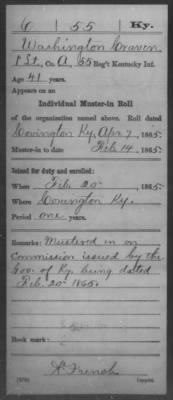 6 | 55 | Ky.
Washington Craven
1 St., Co. A, 55 Reg't Kentucky Inf.
Age 41 years.
Appears on an
Individual Muster-in Roll
of the organization named above. Roll dated
Covington Ky, Apr 7, 1865.
Muster-in to date Feb 14, 1865.
Joined for duty and enrolled:
When Feb 20, 1865.
Where Covington Ky.
Period one years.
Remarks: Mustered in on
Commission issued by the
Gov. of Ky. being dated
Feb. 20th 1865.
Book mark:
French
Copyist.